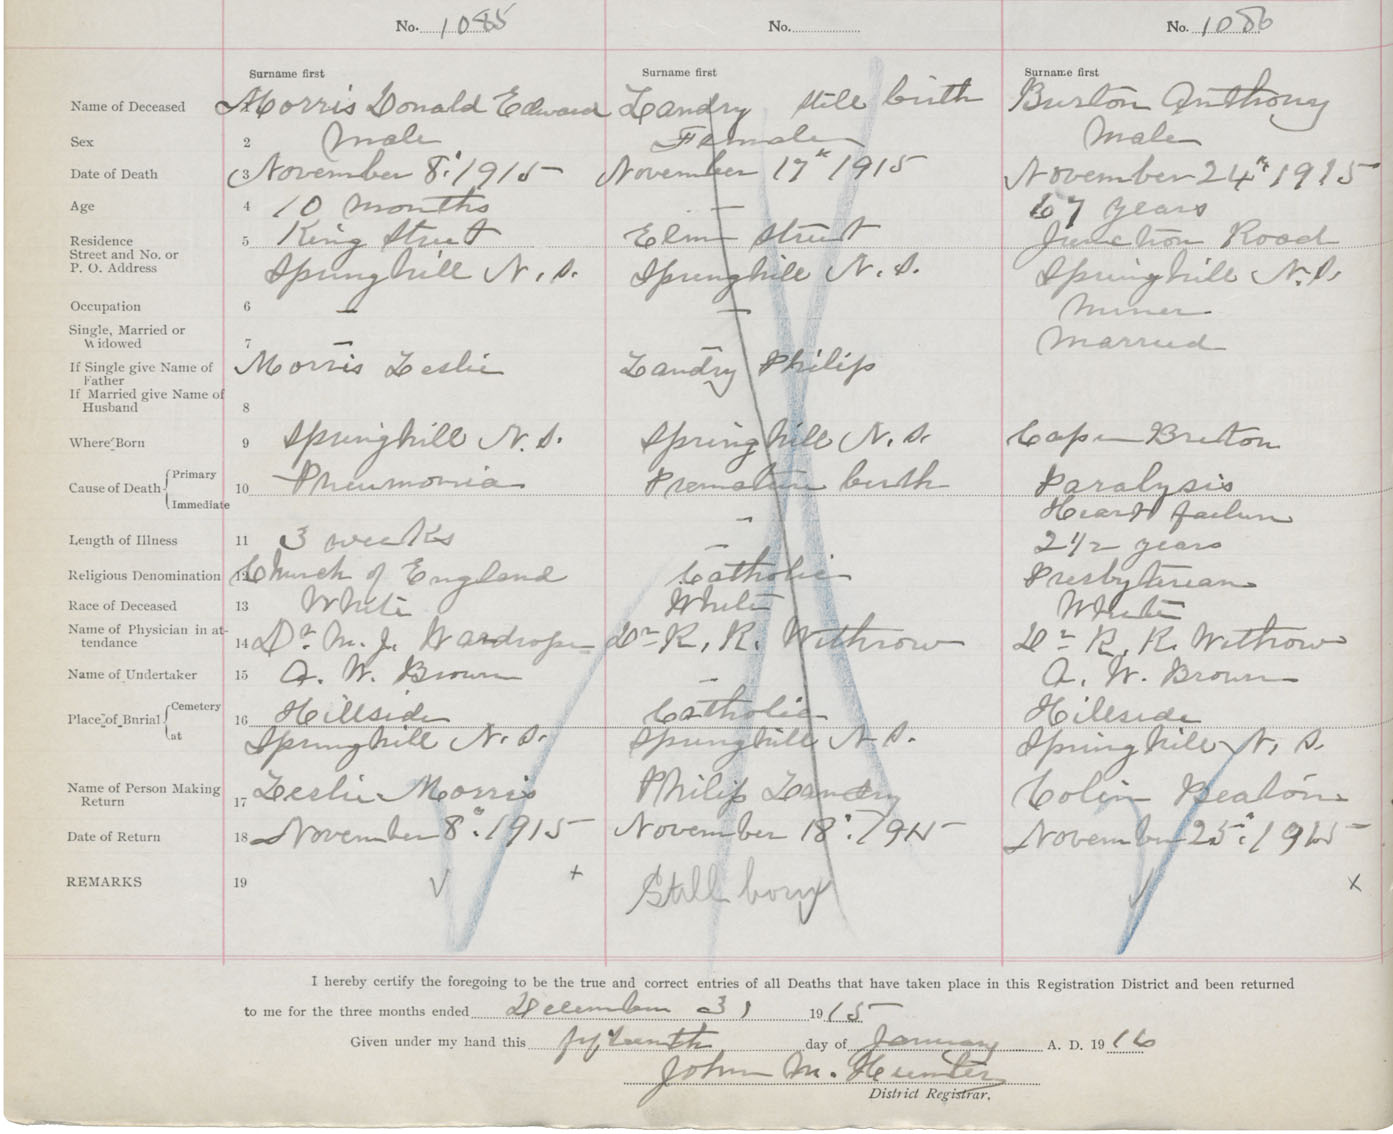 No. 1085 No. No. 1086
Surname first Surname first Surname first
Name of Deceased Morris Donald Edward Landry still birth Burton Anthony
Sex 2 Male Female Male
Date of Death 3 November 8" 1915 November 17th 1915 November 24th 1915
Age 4 10 months — 67 years
Residence 5 King Street Elm Street Junction Road
Street and No. or
P. O. Address Springhill N. S. Springhill N. S. Springhill N. S.
Occupation 6 — — Miner
Single, Married or
Widowed 7 — Married
If Single give Name of
Father Morris Leslie Landry Philip
If Married give Name of
Husband 8
Where Born 9 Springhill N. S. Springhill N. S. Cape Breton
Cause of Death Primary
10 Pneumonia Premature birth Paralysis
Immediate — Heart failure
Length of Illness 11 3 weeks — 2 1/2 years
Religious Denomination 12 Church of England Catholic Presbyterian
Race of Deceased 13 White White White
Name of Physician in at-
tendance 14 Dr. M. J. Wardrope Dr R. R. Withrow Dr R. R. Withrow
Name of Undertaker 15 A. W. Brown — A. W. Brown
Place of Burial Cemetery
16 Hillside Catholic Hillside
at Springhill N. S. Springhill N. S. Springhill N. S.
Name of Person Making
Return 17 Leslie Morris Philip Landry Colin Beaton
Date of Return 18 November 8" 1915 November 18" 1915 November 25" 1915
REMARKS 19 Still born
I hereby certify the foregoing to be the true and correct entries of all Deaths that have taken place in this Registration District and been returned
to me for the three months ended December 31 1915
Given under my hand this fifteenth day of January A. D. 1916
John M. Hunter
District Registrar.